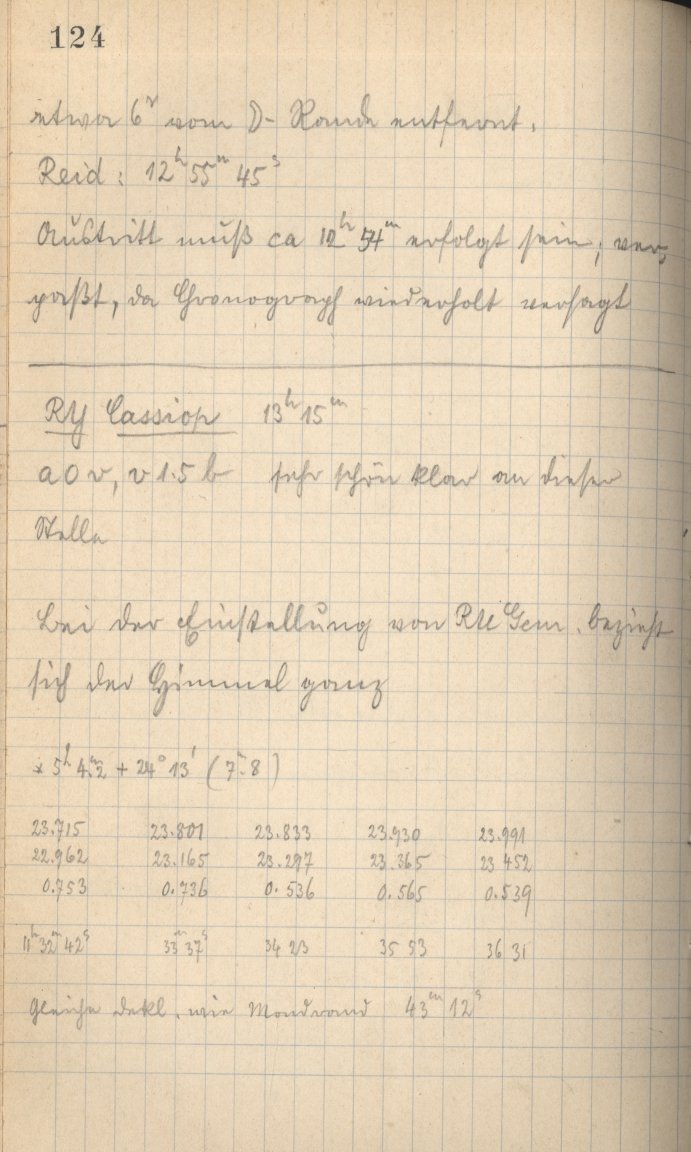 124
etwa 6ʳ vom ☽- Rande entfernt.
Reid : 12ʰ 55ᵐ 45ˢ
Austritt muß ca 12ʰ 54ᵐ erfolgt sein, ver=
paßt, da Chronograph wiederholt versagt
RY Cassiop 13ʰ 15ᵐ
a 0 v, v 1.5 b sehr schön klar an dieser
Stelle
Bei der Einstellung von RU Gem. bezieht
sich der Himmel ganz
* 5ʰ 4ᵐ.2 + 24° 13' ( 7ᵐ.8 )
23.715 23.801 23.833 23.930 23.991
22.962 23.165 23.297 23.365 23 452
0.753 0.736 0.536 0.565 0.539
11ʰ 32ᵐ 42ˢ 33ᵐ 37ˢ 34 23 35 53 36 31
Gleiche Dekl. wie Mondrand 43ᵐ 12ˢ